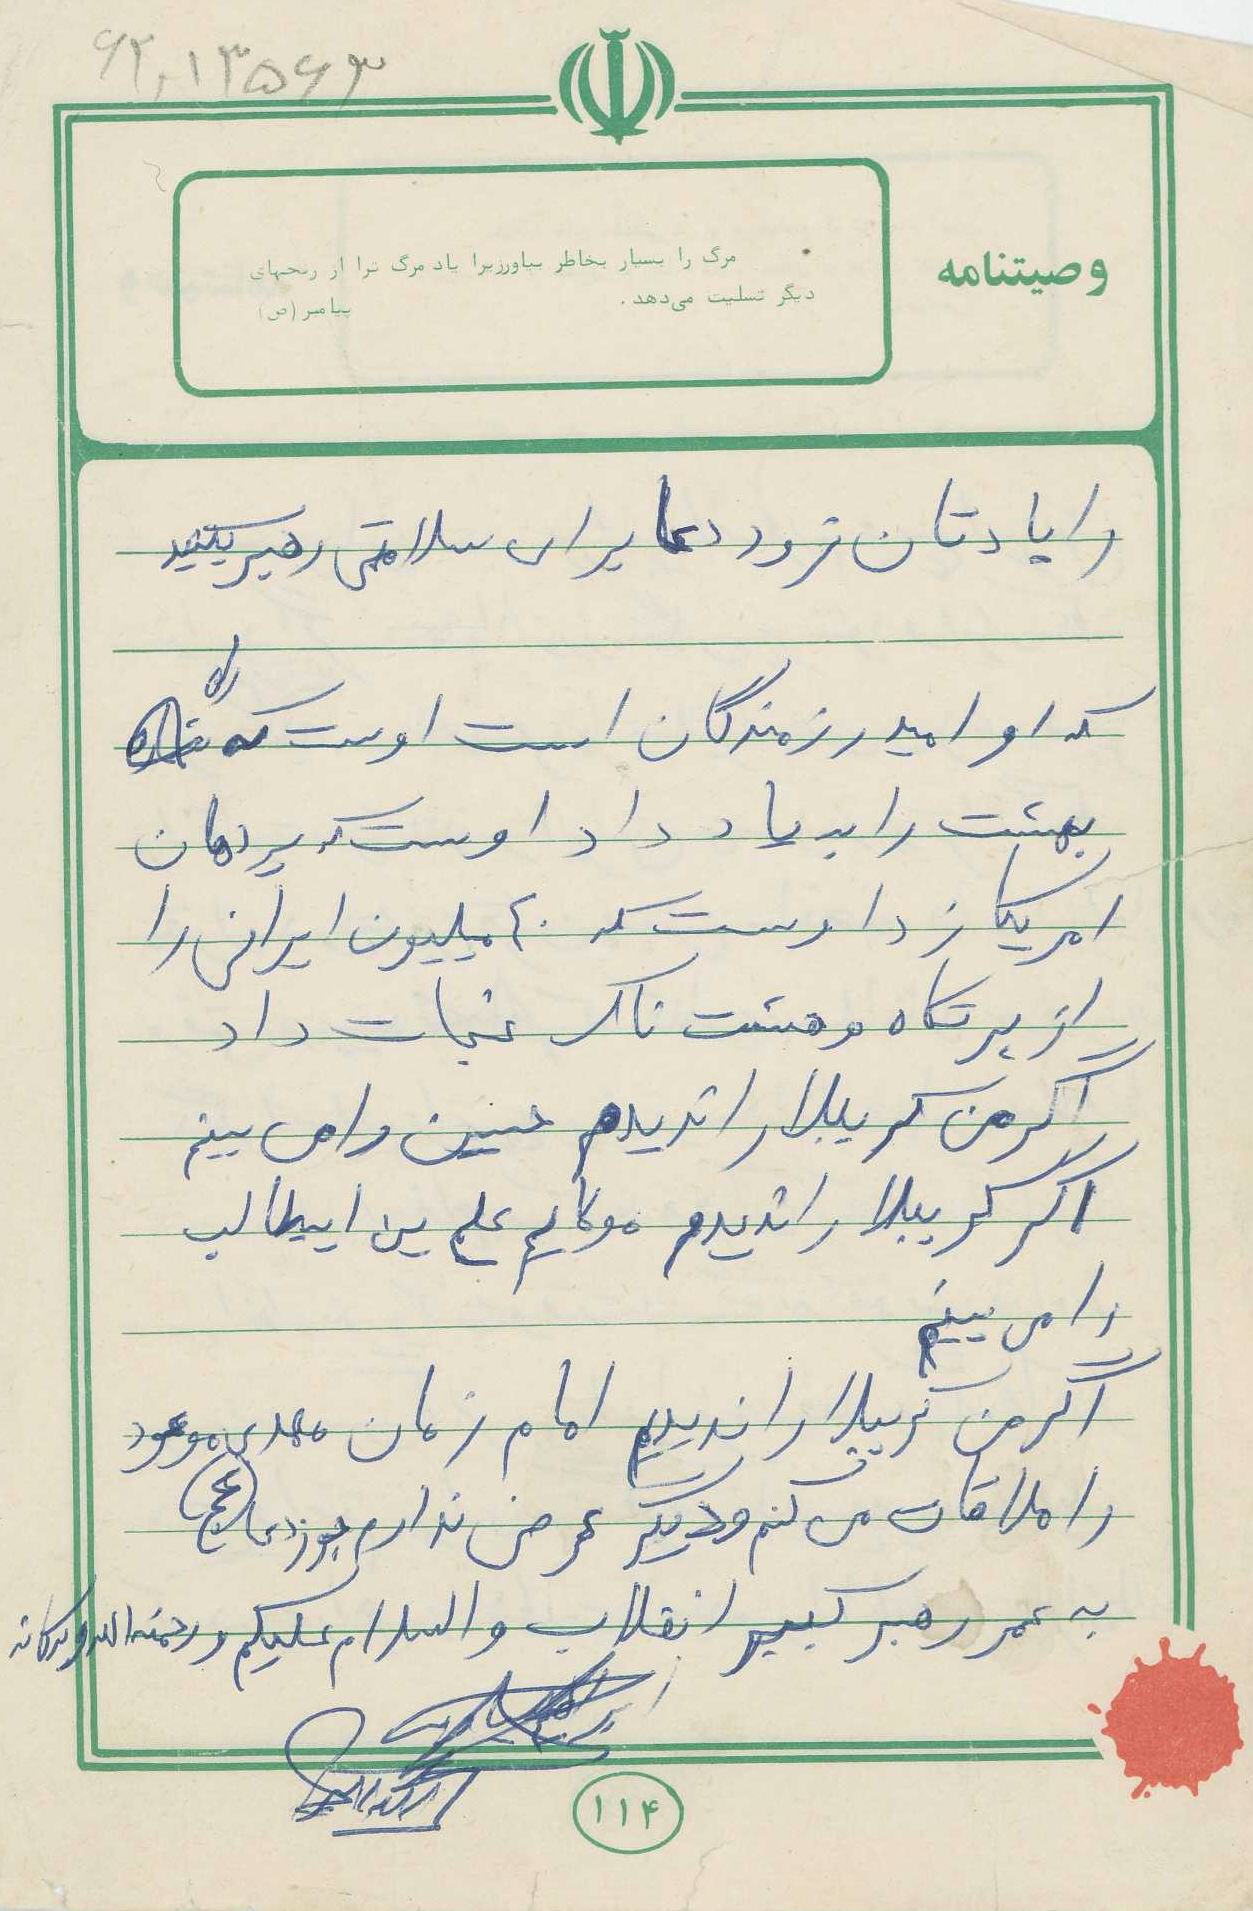 ۶۲,۱۳۵۶۳
وصیتنامه
مرگ را بسیار بخاطر بیاورزیرا یاد مرگ ترا از رنجهای
دیگر تسلیت می‌دهد.
پیامبر (ص)
را یادتان نرود دعا برای سلامتی رهبر بکنید
که او امید رزمندگان است اوست که راه
بهشت را به یاد داد اوست که بر دهان
امریکا زد اوست که ۴۰ میلیون ایرانی را
از پرتگاه وحشت ناک نجات داد
اگر من کربلا را ندیدم حسین را می بینم
اگر کربلا را ندیدم مولایم علی بن ابیطالب
را می بینم
اگر من کربلا را ندیدم امام زمان مهدی موعود
را ملاقات می کنم و دیگر عرض ندارم بجوز دعا
به عمر رهبر کبیر انقلاب والسلام علیکم و رحمته الله و برکاته
۱۱۴